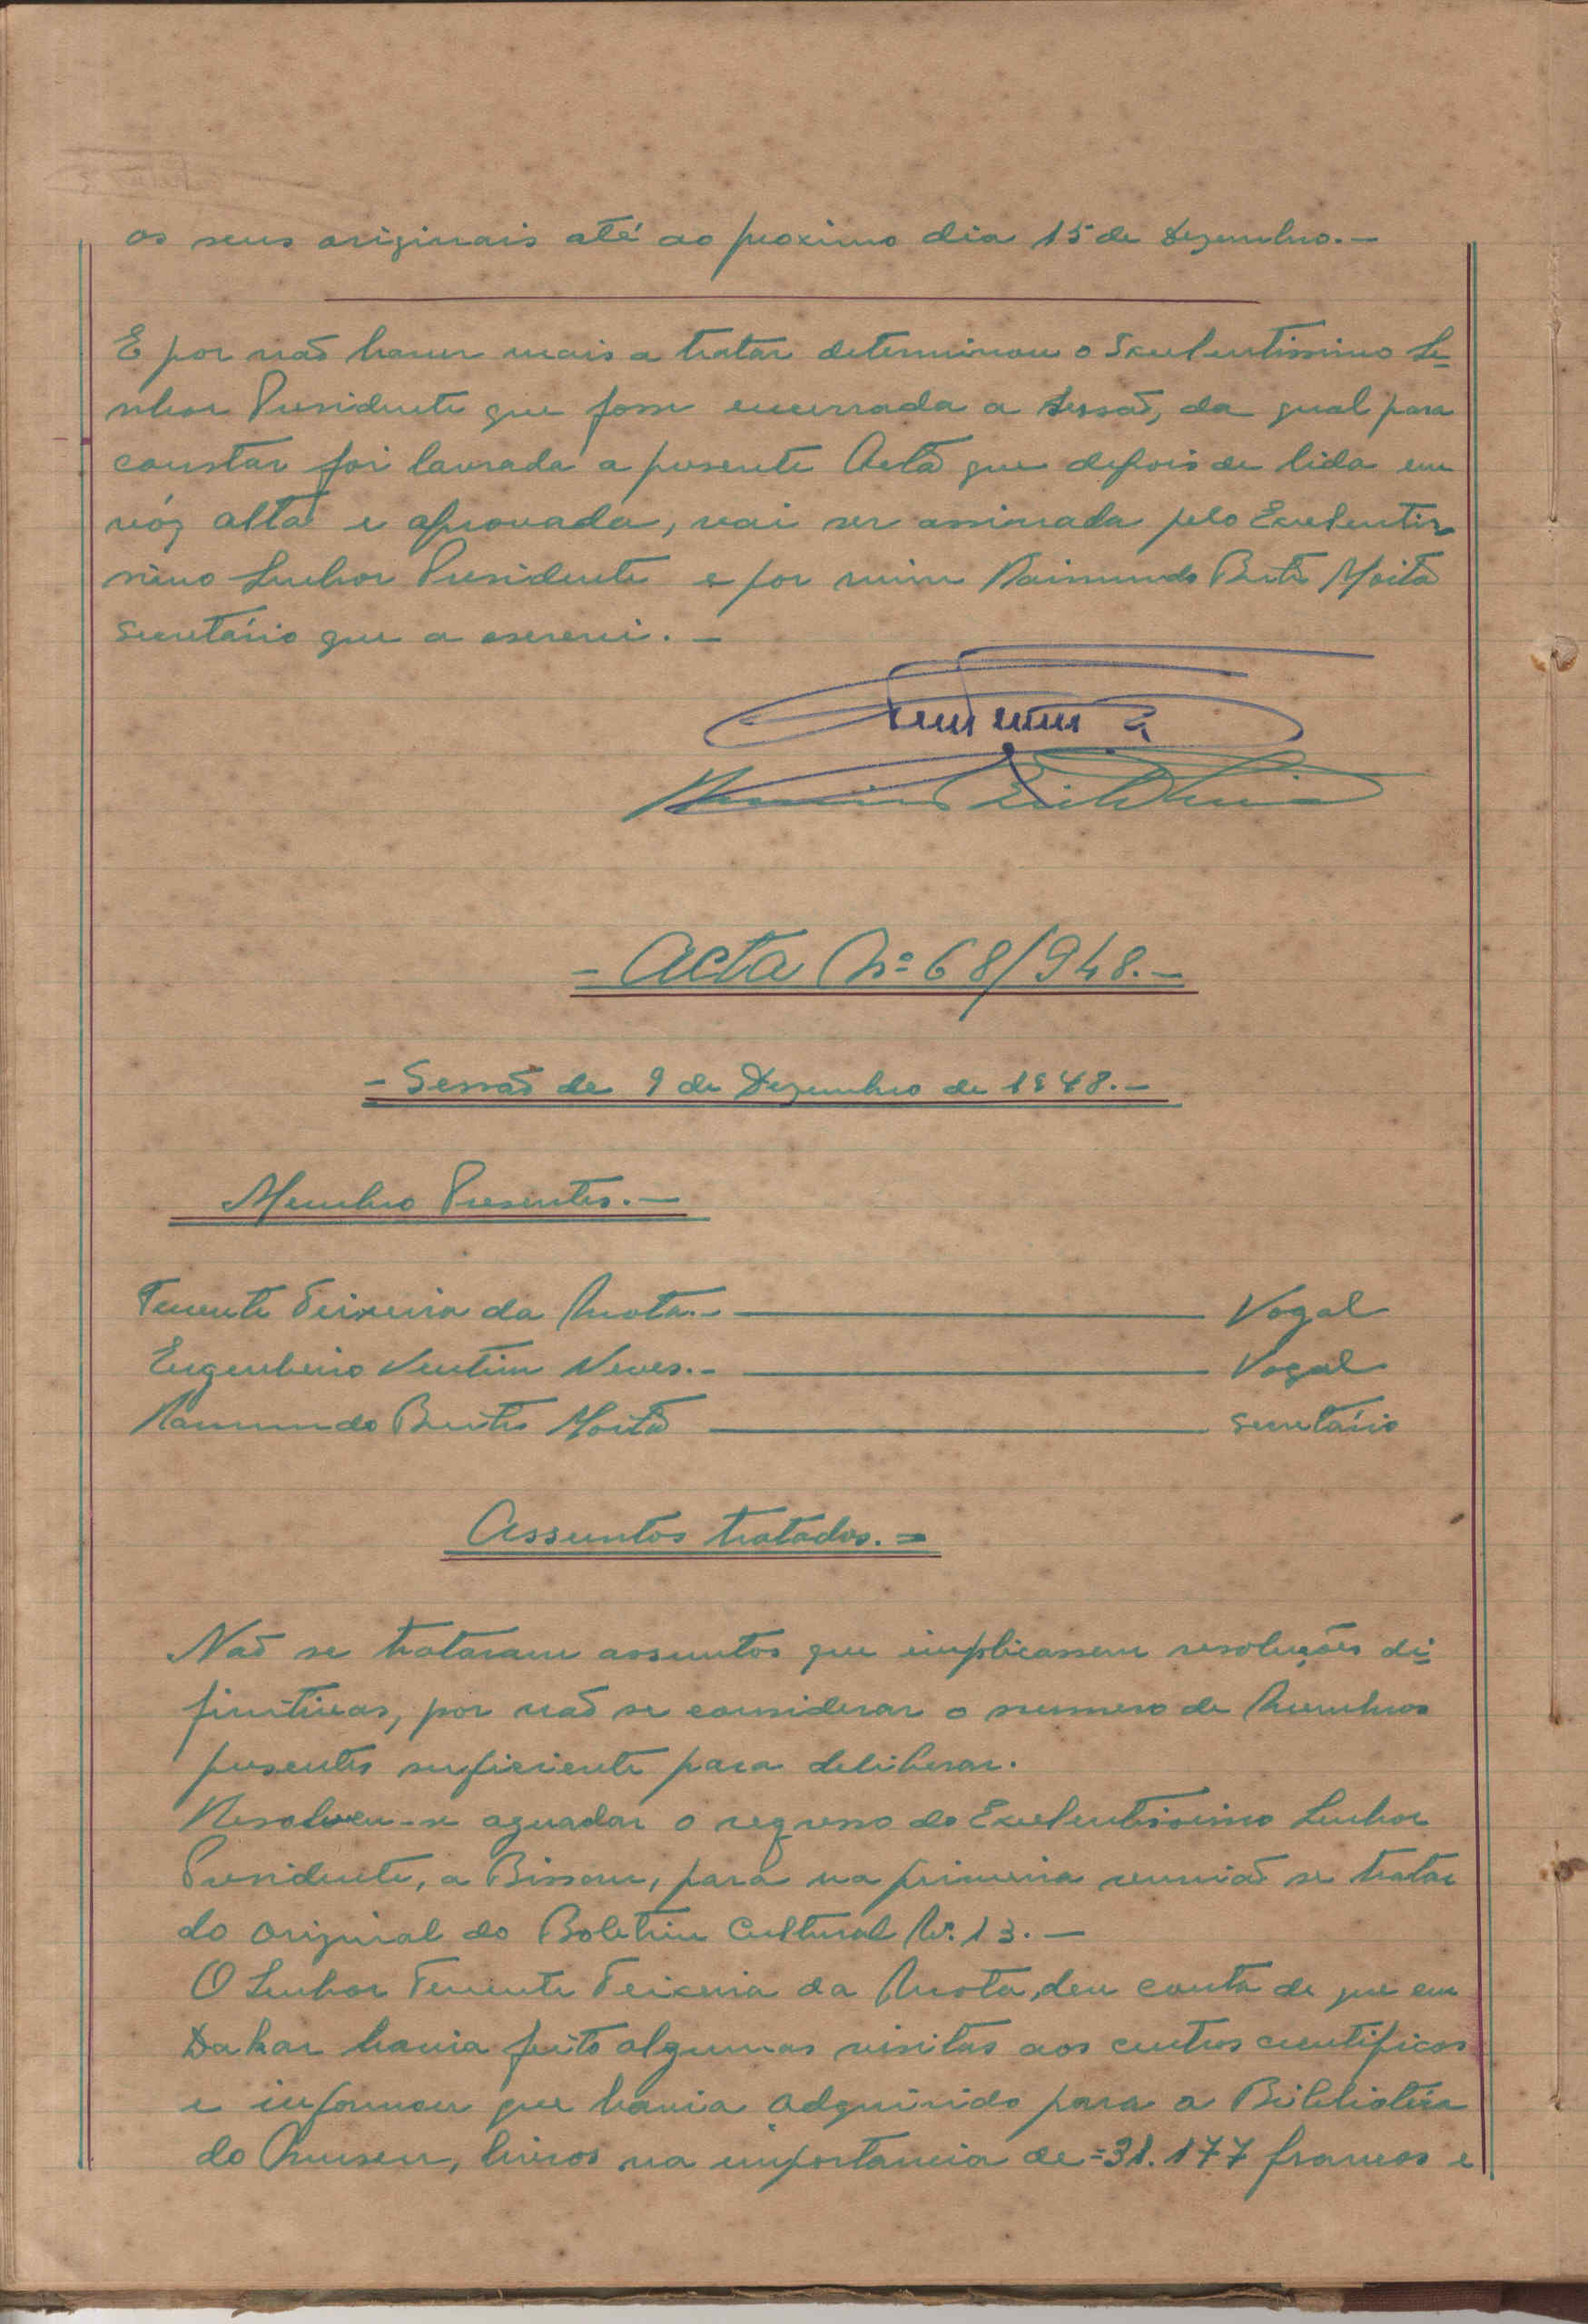 os seus originais até ao proximo dia 15 de Dezembro.-
E por não haver mais a tratar determinou o Excelentissimo Se-
nhor Presidente que fosse encerrada a sessão, da qual para
constar foi lavrada a presente Acta que depois de lida em
vóz alta e aprovada, vai ser assinada pelo Excelentis-
simo Senhor Presidente e por mim Raimundo Brito Moita
secretário que a escrevi. -
- Acta Nº 68/948.-
- Sessão de 9 de Dezembro de 1948.-
Membro Presentes.-
Tenente Teixeira da Mota.- Vogal
Engenheiro Ventim Neves.- Vogal
Raimundo Brito Moita secretário
Assuntos tratados.=
Não se trataram assuntos que implicassem resoluções di-
finitivas, por não se considerar o numero de Membros
presentes suficiente para deliberar.
Resolveu-se aguadar o regresso do Excelentissimo Senhor
Presidente, a Bissau, para na primeira reunião se tratar
do original do Boletim Cultural Nº. 13.-
O Senhor Tenente Teixeira da Mota, deu conta de que em
Dakar havia feito algumas visitas aos centros cientificos
e informou que havia adquirido para a Biblioteca
do Museu, livros na importancia de=31.177 francos e